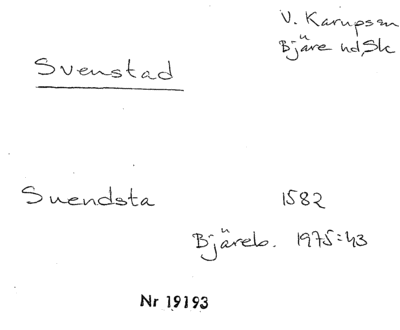 V. Karupssn
Bjäre hd, Sk
Svenstad
Svendsta 1582
Bjäreb. 1975:43
Nr 19193